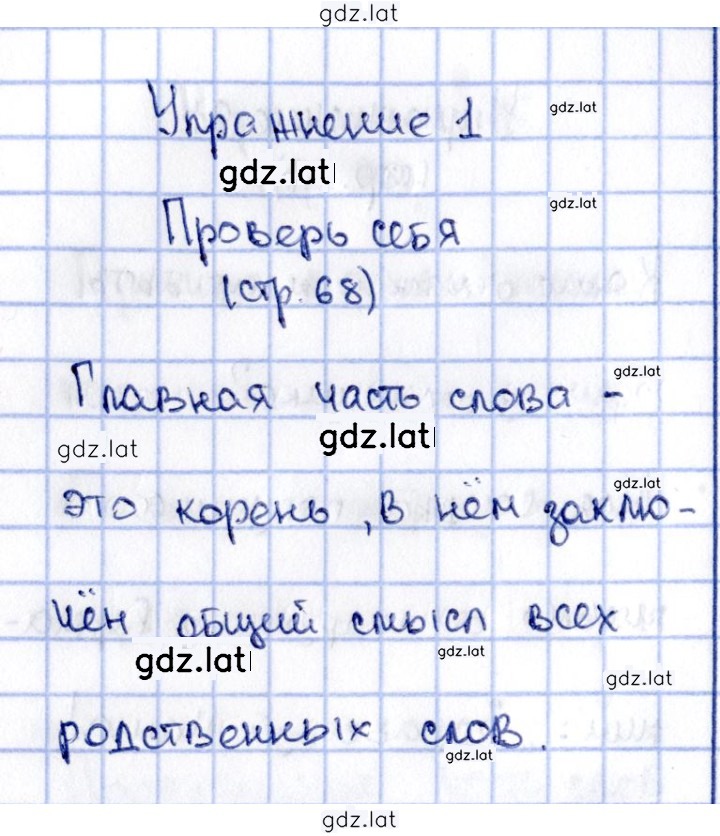 gdz.lat
Упражнение 1
gdz.lat
gdz.lat
gdz.lat
Проверь себя
(стр. 68)
gdz.lat
Главная часть слова -
gdz.lat
gdz.lat
gdz.lat
это корень, в нём заклю-
чён общий смысл всех
gdz.lat
gdz.lat
gdz.lat
родственных слов.
gdz.lat
gdz.lat